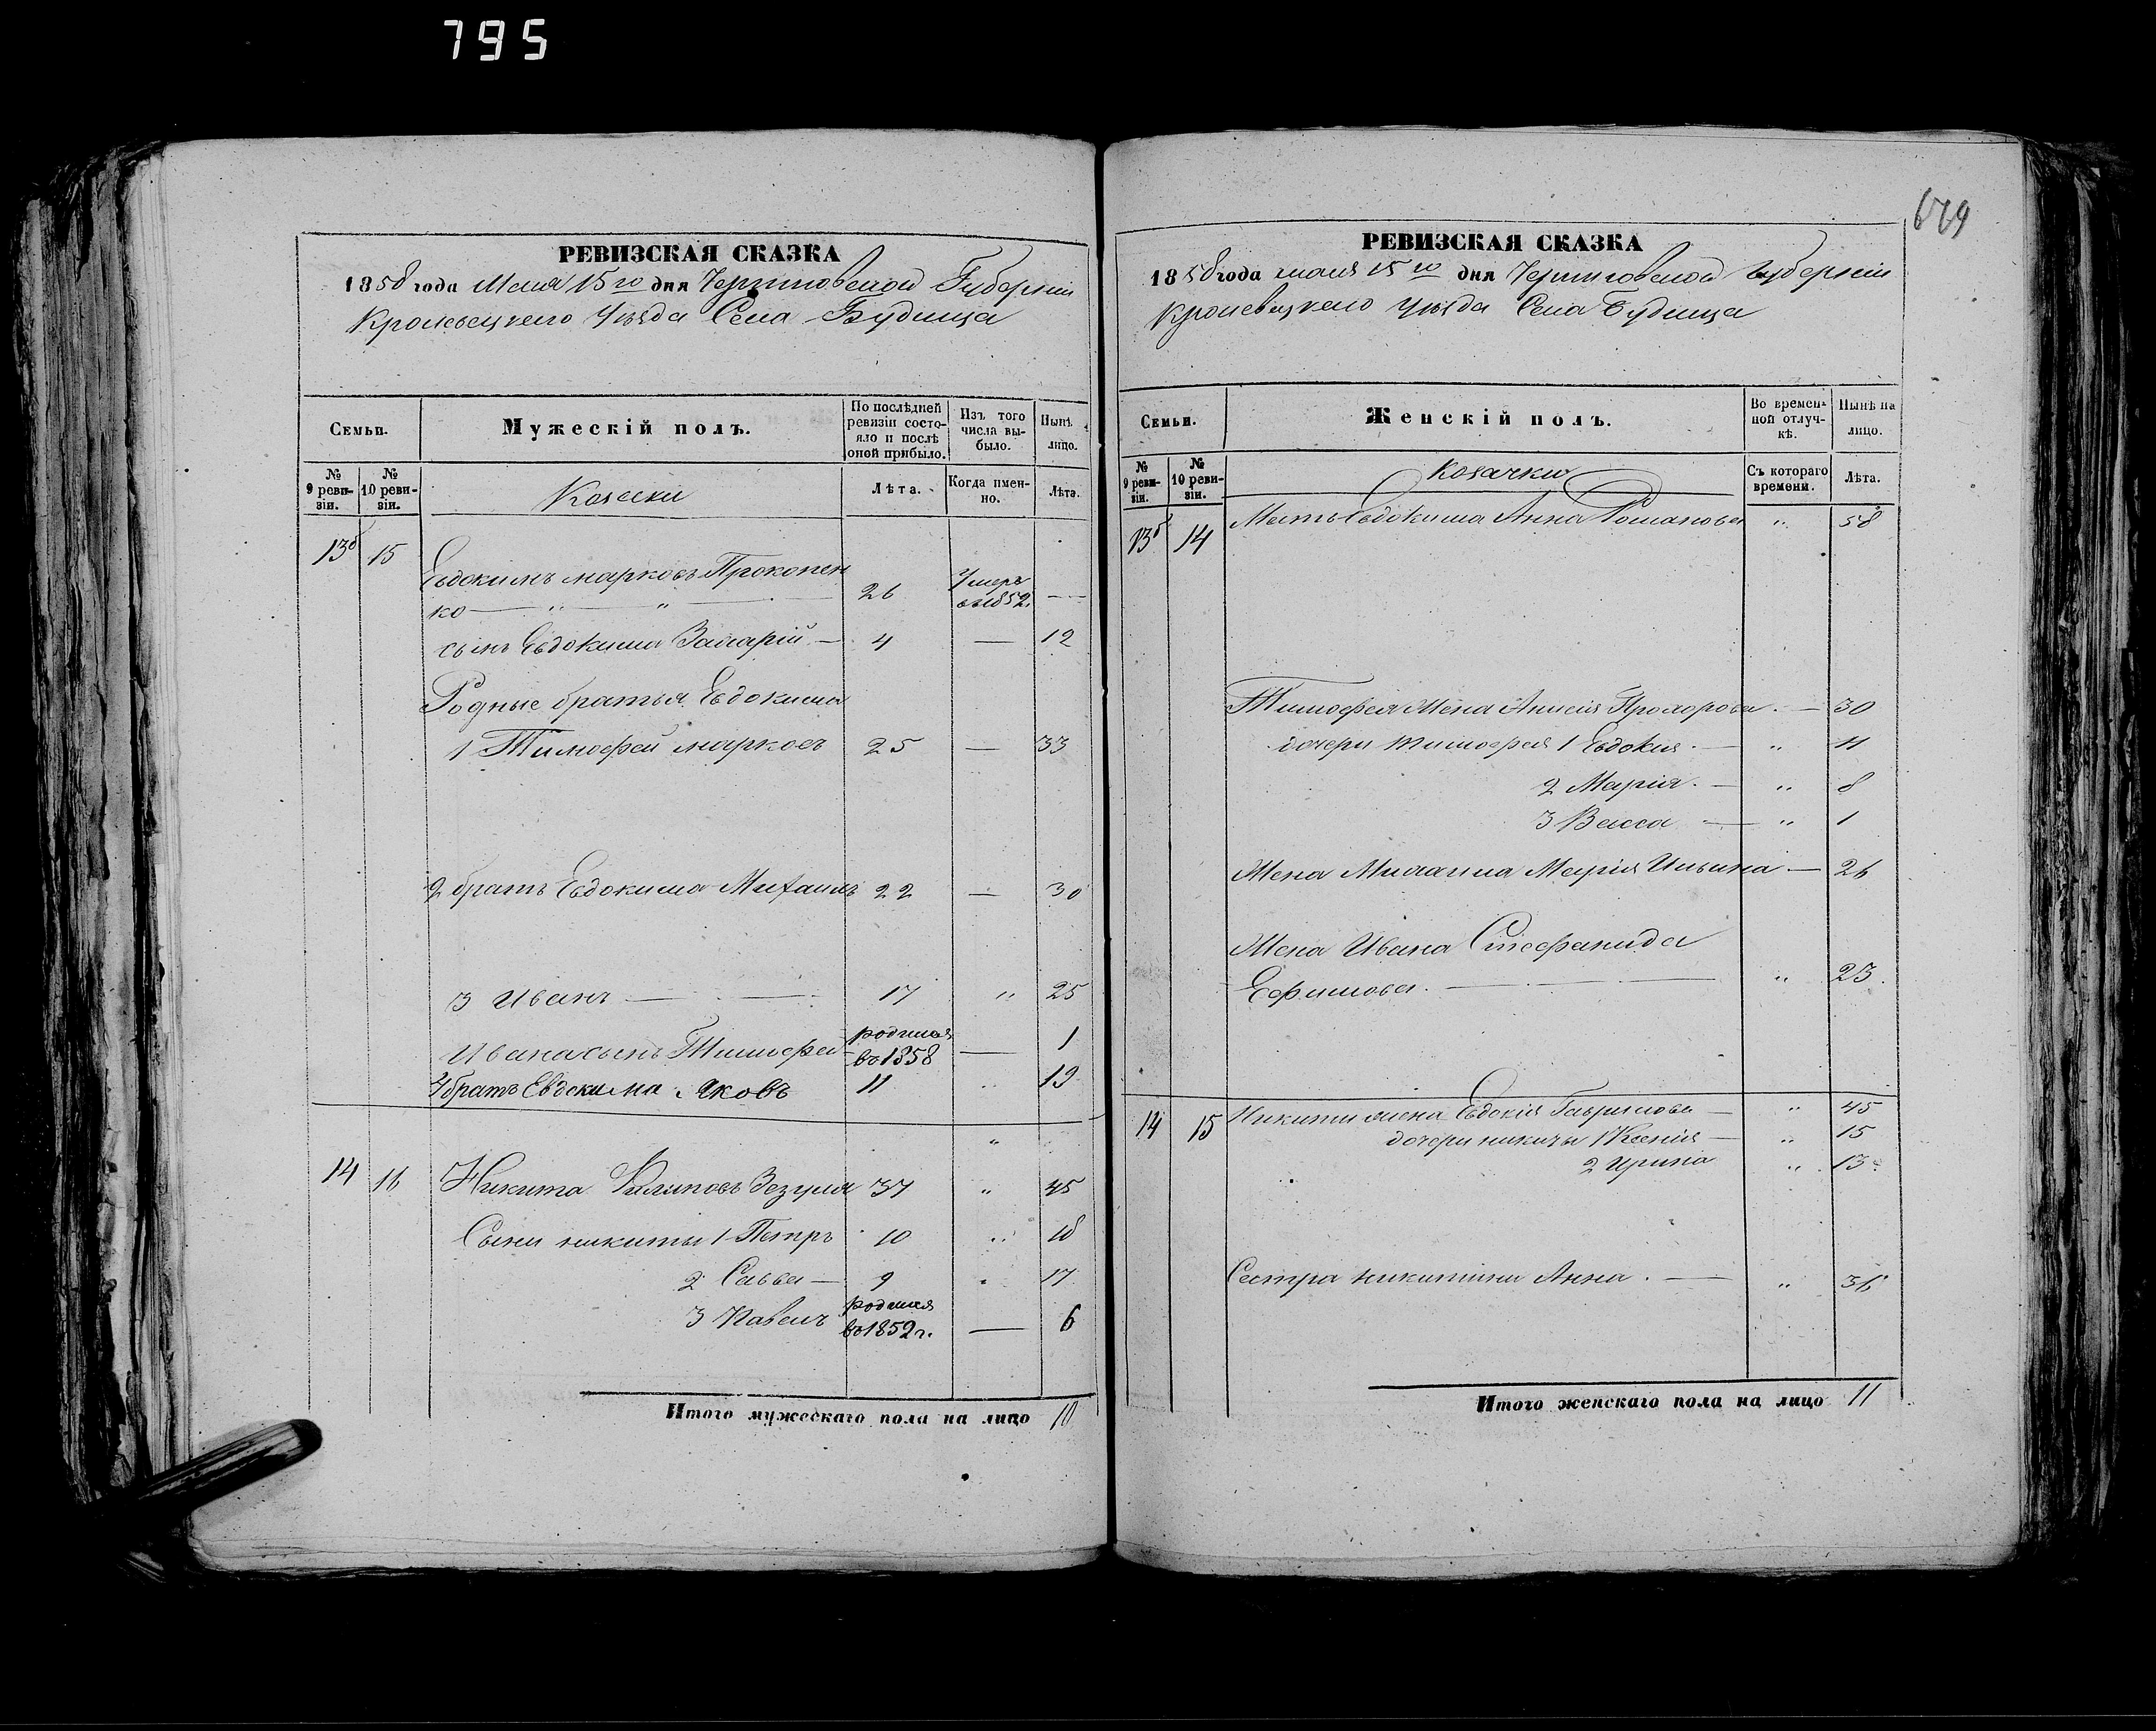 795
РЕВИЗСКАЯ СКАЗКА
1858 года Мая 15го дня Черниговской Губерніи
Кролевецкаго Уѣзда Села Будища
Семьи.
Мужескій полъ.
По послѣдней ревизіи состояло и послѣ оной прибыло.
Изъ того числа выбыло.
Нынѣ лицо.
№ 9 ревизіи.
№ 10 ревизіи.
Козаки
Лѣта.
Когда именно.
Лѣта.
13 15
Евдокимъ Марковъ Прокопен
ко — " — " — 26 Умеръ въ 1852. —
сынъ Евдокима Захарій — 4 — 12
Родные братья Евдокима
1 Тимофей Марковъ 25 — 33
2 братъ Евдокима Михаилъ 22 — 30
3 Иванъ — 17 " 25
Ивана сынъ Тимофей родился въ 1858 — 1
4 братъ Евдокима Яковъ 11 " 19
"
14 16 Никита Филиповъ Зезуля 37 " 45
Сыни никиты 1 Петръ 10 " 18
2 Савва — 9 " 17
3 Павелъ родился въ 1852 г. — 6
Итого мужескаго пола на лицо 10
679
РЕВИЗСКАЯ СКАЗКА
1858 года мая 15го дня Черниговской Губерніи
Кролевецкаго Уѣзда Села Будища
Семьи.
Женскій полъ.
Во временной отлучкѣ.
Нынѣ на лицо.
№ 9 ревизіи.
№ 10 ревизіи.
Козачки
Съ котораго времени.
Лѣта.
13 14 Мать Евдокима Анна Романова " 58
Тимофея Жена Анисія Прохорова — 30
дочери тимофея 1 Евдокія — " 11
2 Марія — " 8
3 Васса — " 1
Жена Михаила Марія Ильина — 26
Жена Ивана Стефанида
Ефимова — " 23
14 15 Никити жена Евдокія Гаврилова — " 45
дочери никиты 1 Ксенія — " 15
2 Ирина " 13
Сестра никитина Анна — " 36
Итого женскаго пола на лицо 11